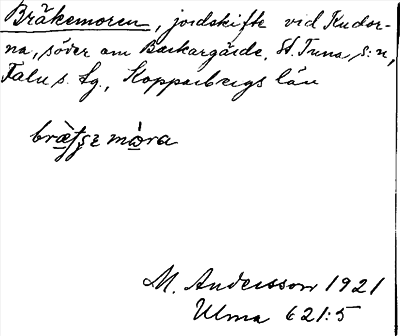 Bräkemoren, jordskifte vid Kudor-
na, söder om Backargårde, St. Tuna, s:n,
Falu s. lg., Kopparbergs län
M. Andersson 1921
Ulma 621:5